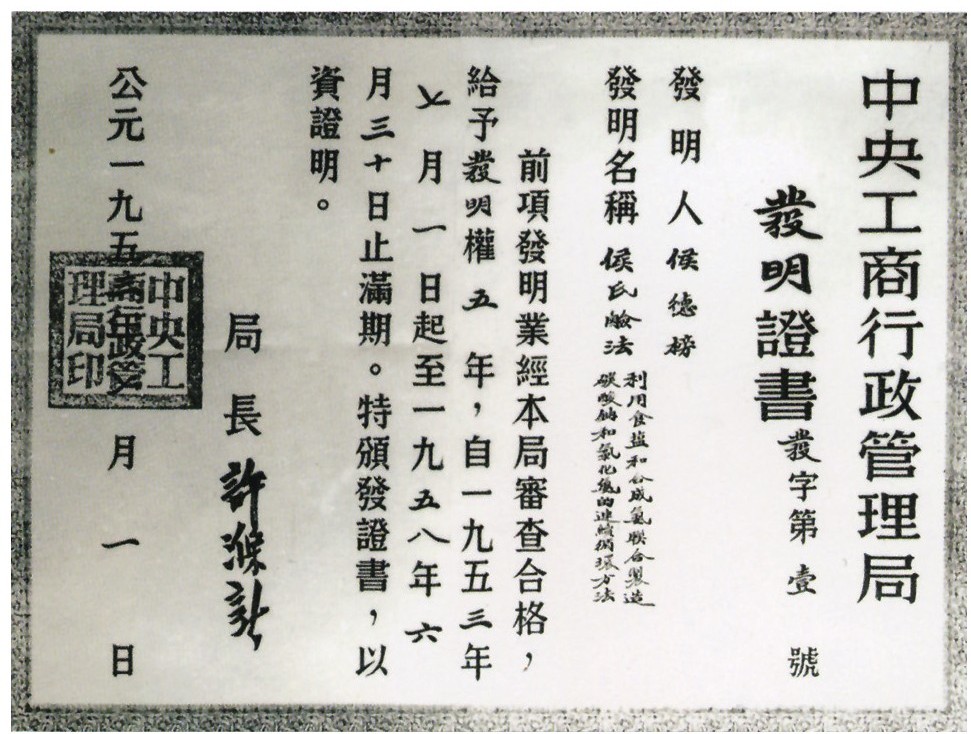 中央工商行政管理局
發明證書
發字第壹號
發明人 侯德榜
發明名稱 侯氏鹼法
利用食盐和合成氨联合製造
碳酸鈉和氯化氨的連續循環方法
前項發明業經本局審查合格，
給予發明權五年，自一九五三年
七月一日起至一九五八年六
月三十日止滿期。特頒發證書，以
資證明。
局長 許滌新
公元一九五三年七月一日
中央工商行政管理局印